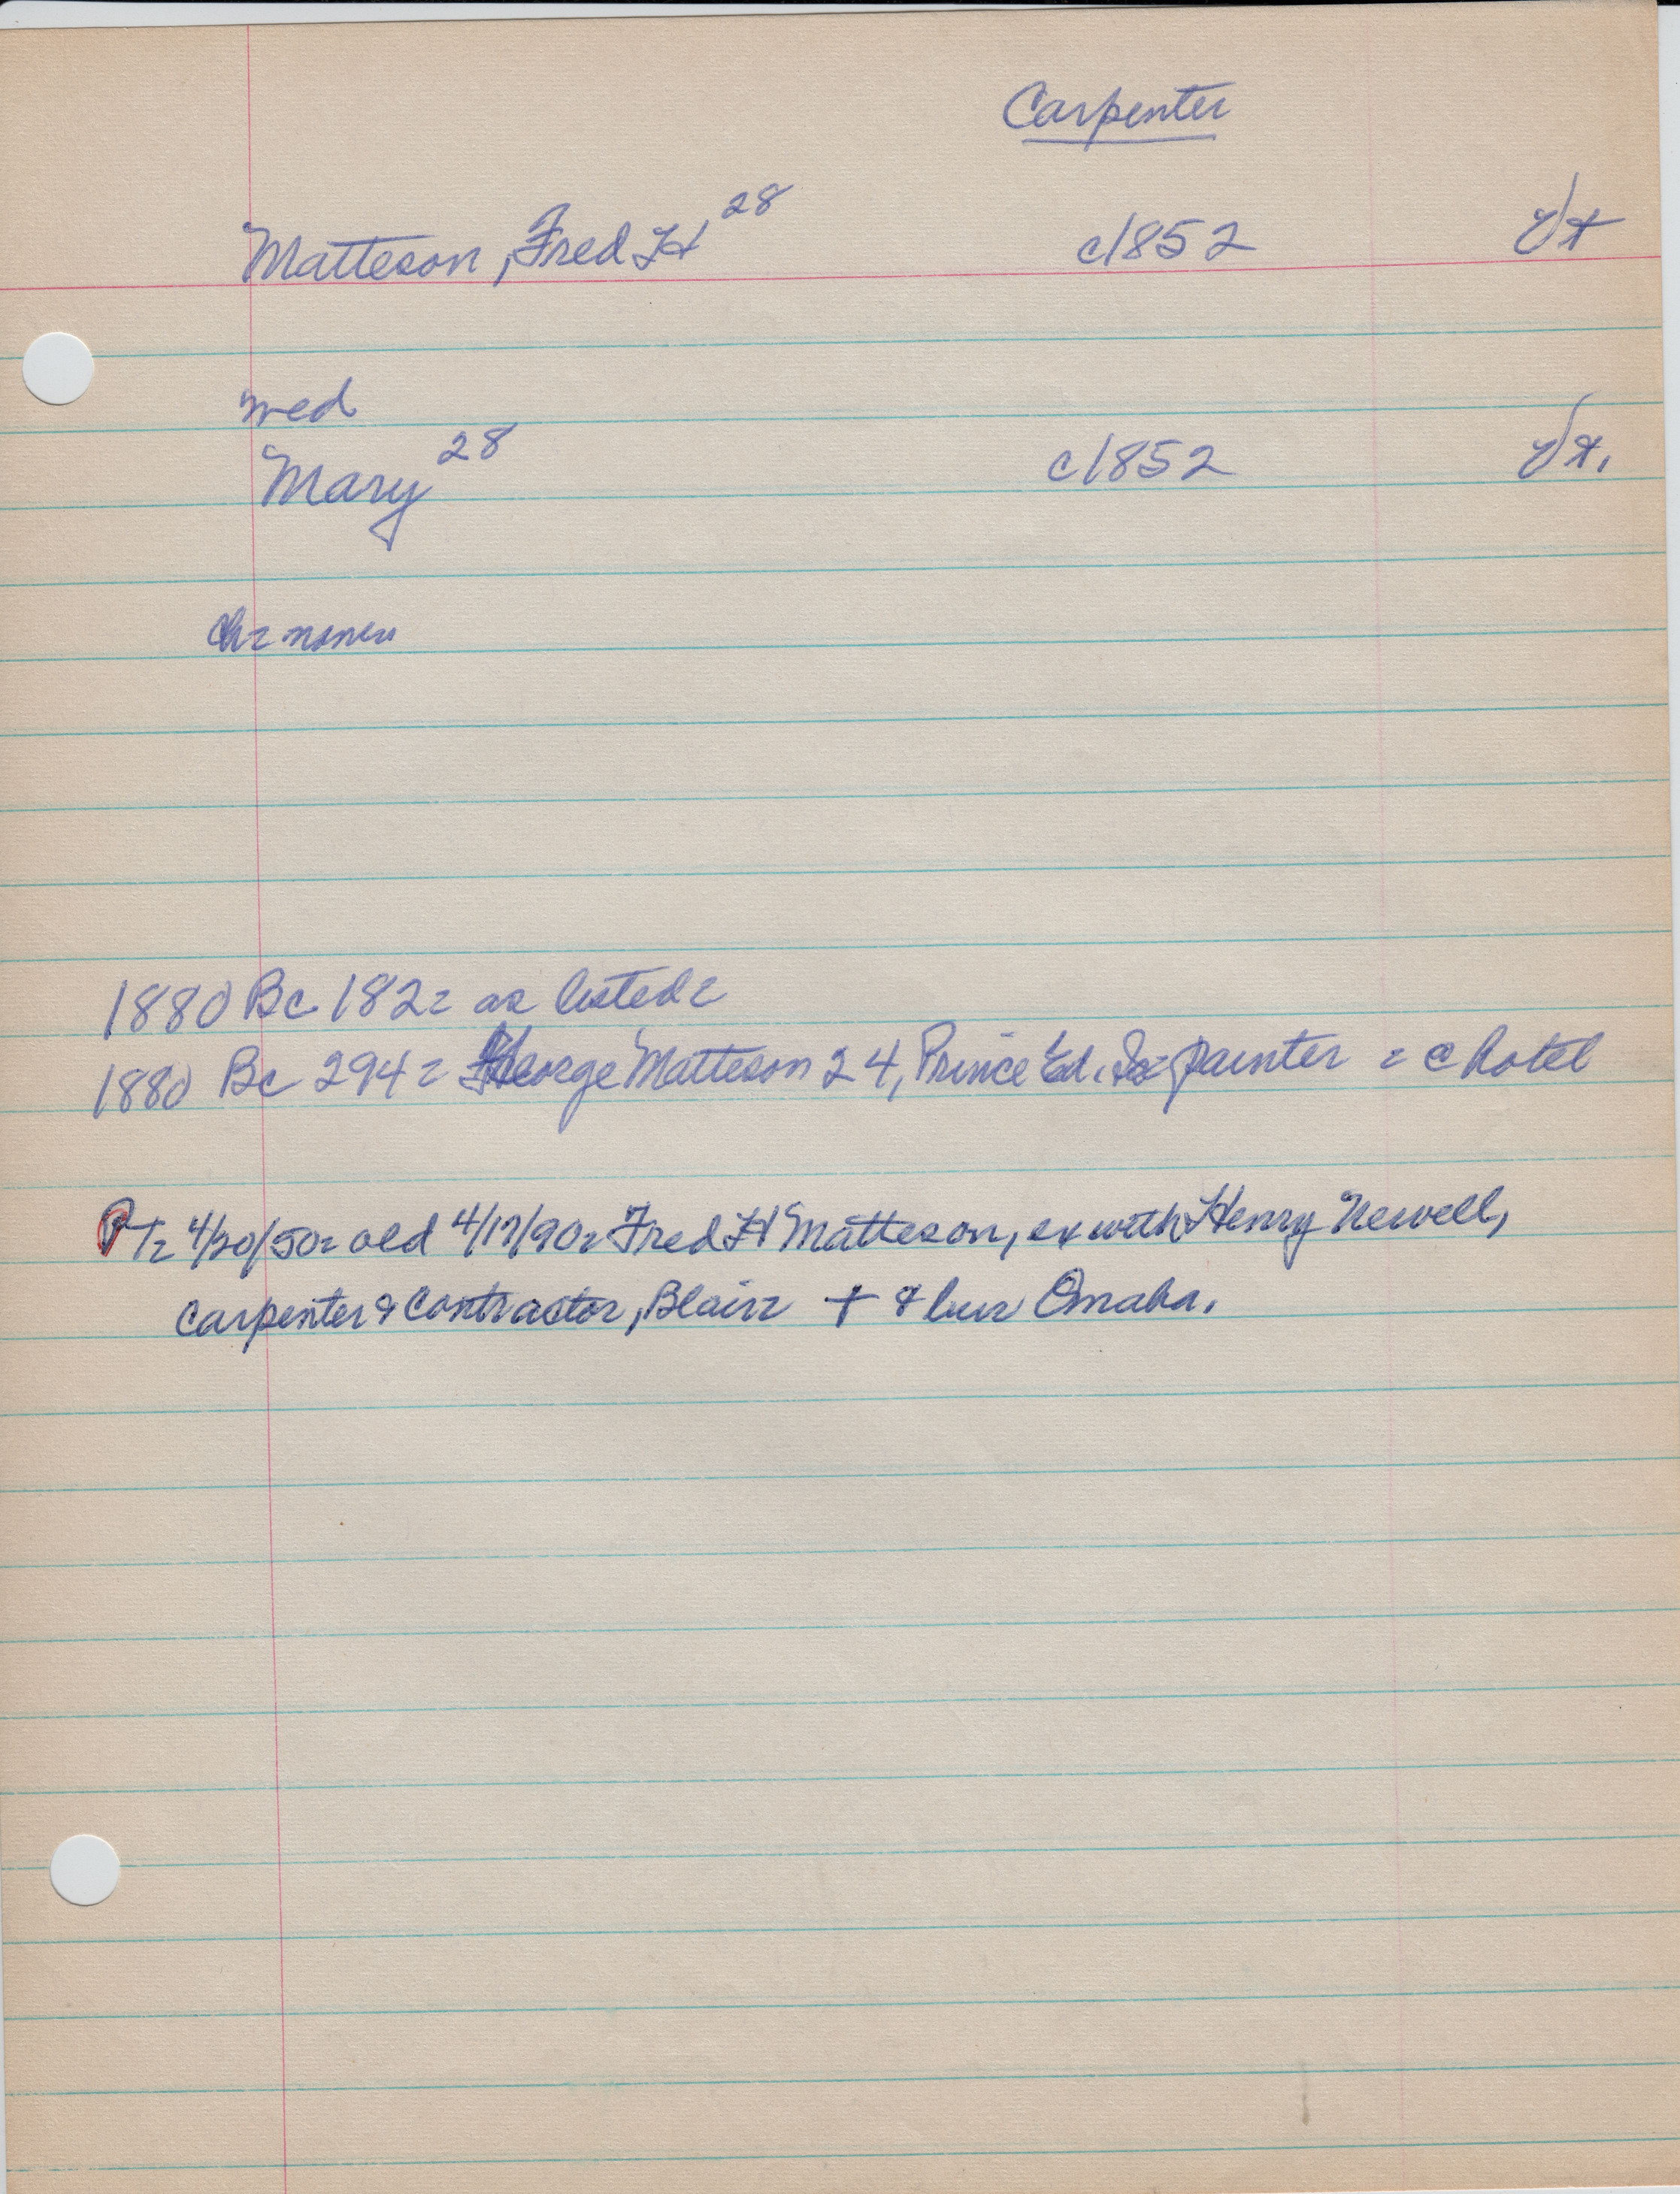 Carpenter
Matteson, Fred H 28 c1852 Vt
wed
Mary 28 c1852 Vt.
Ch = none =
1880 Bc 182 = as listed =
1880 Bc 294 = George Matteson 24, Prince Ed. Is = painter = @ hotel
PT = 4/20/50 = old 4/17/90 = Fred H Matteson, ex with Henry Newell,
carpenter & contractor, Blair = + & bur Omaha.